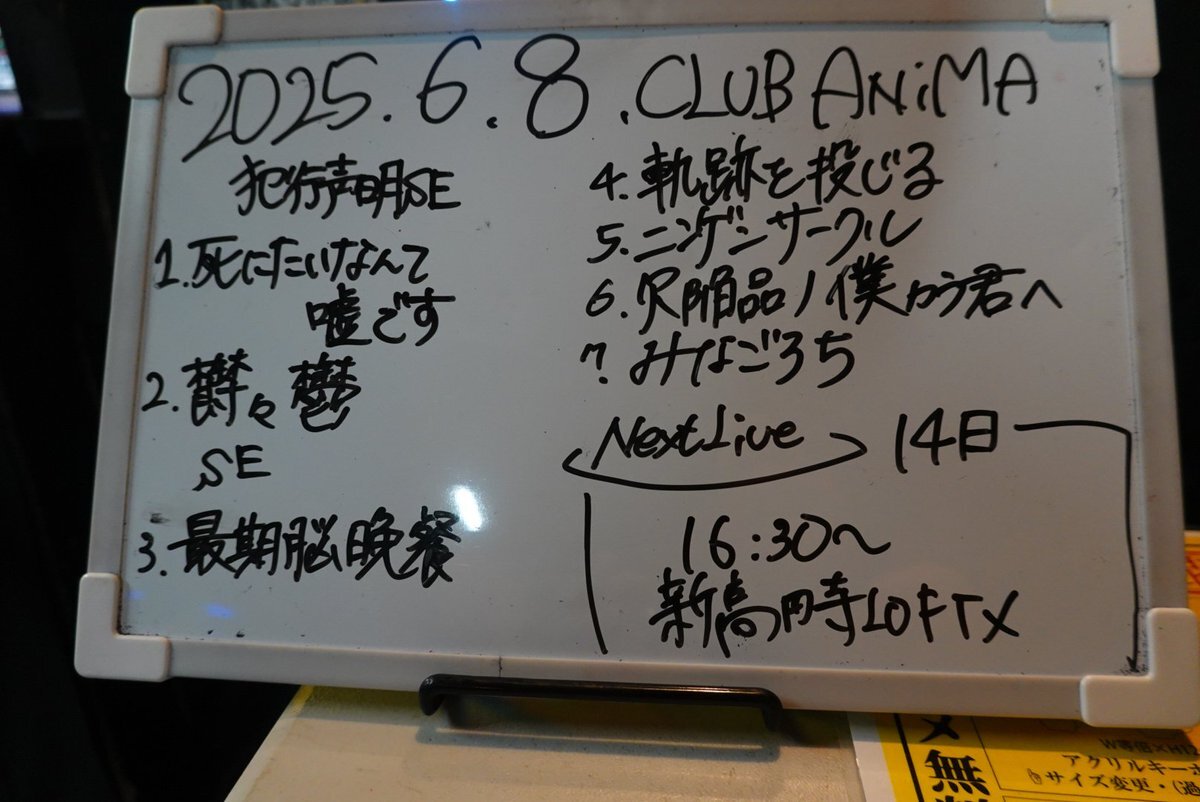 2025.6.8.CLUB ANiMA
犯行声明SE
1.死にたいなんて
嘘です
2.鬱々鬱
SE
3.最期脳晩餐
4.軌跡を投じる
5.ニンゲンサークル
6.欠陥品ノ僕カラ君へ
7.みなごろち
Next Live 14日
16:30〜
新高円寺LOFTX
アクリルキーホ
サイズ変更・(過